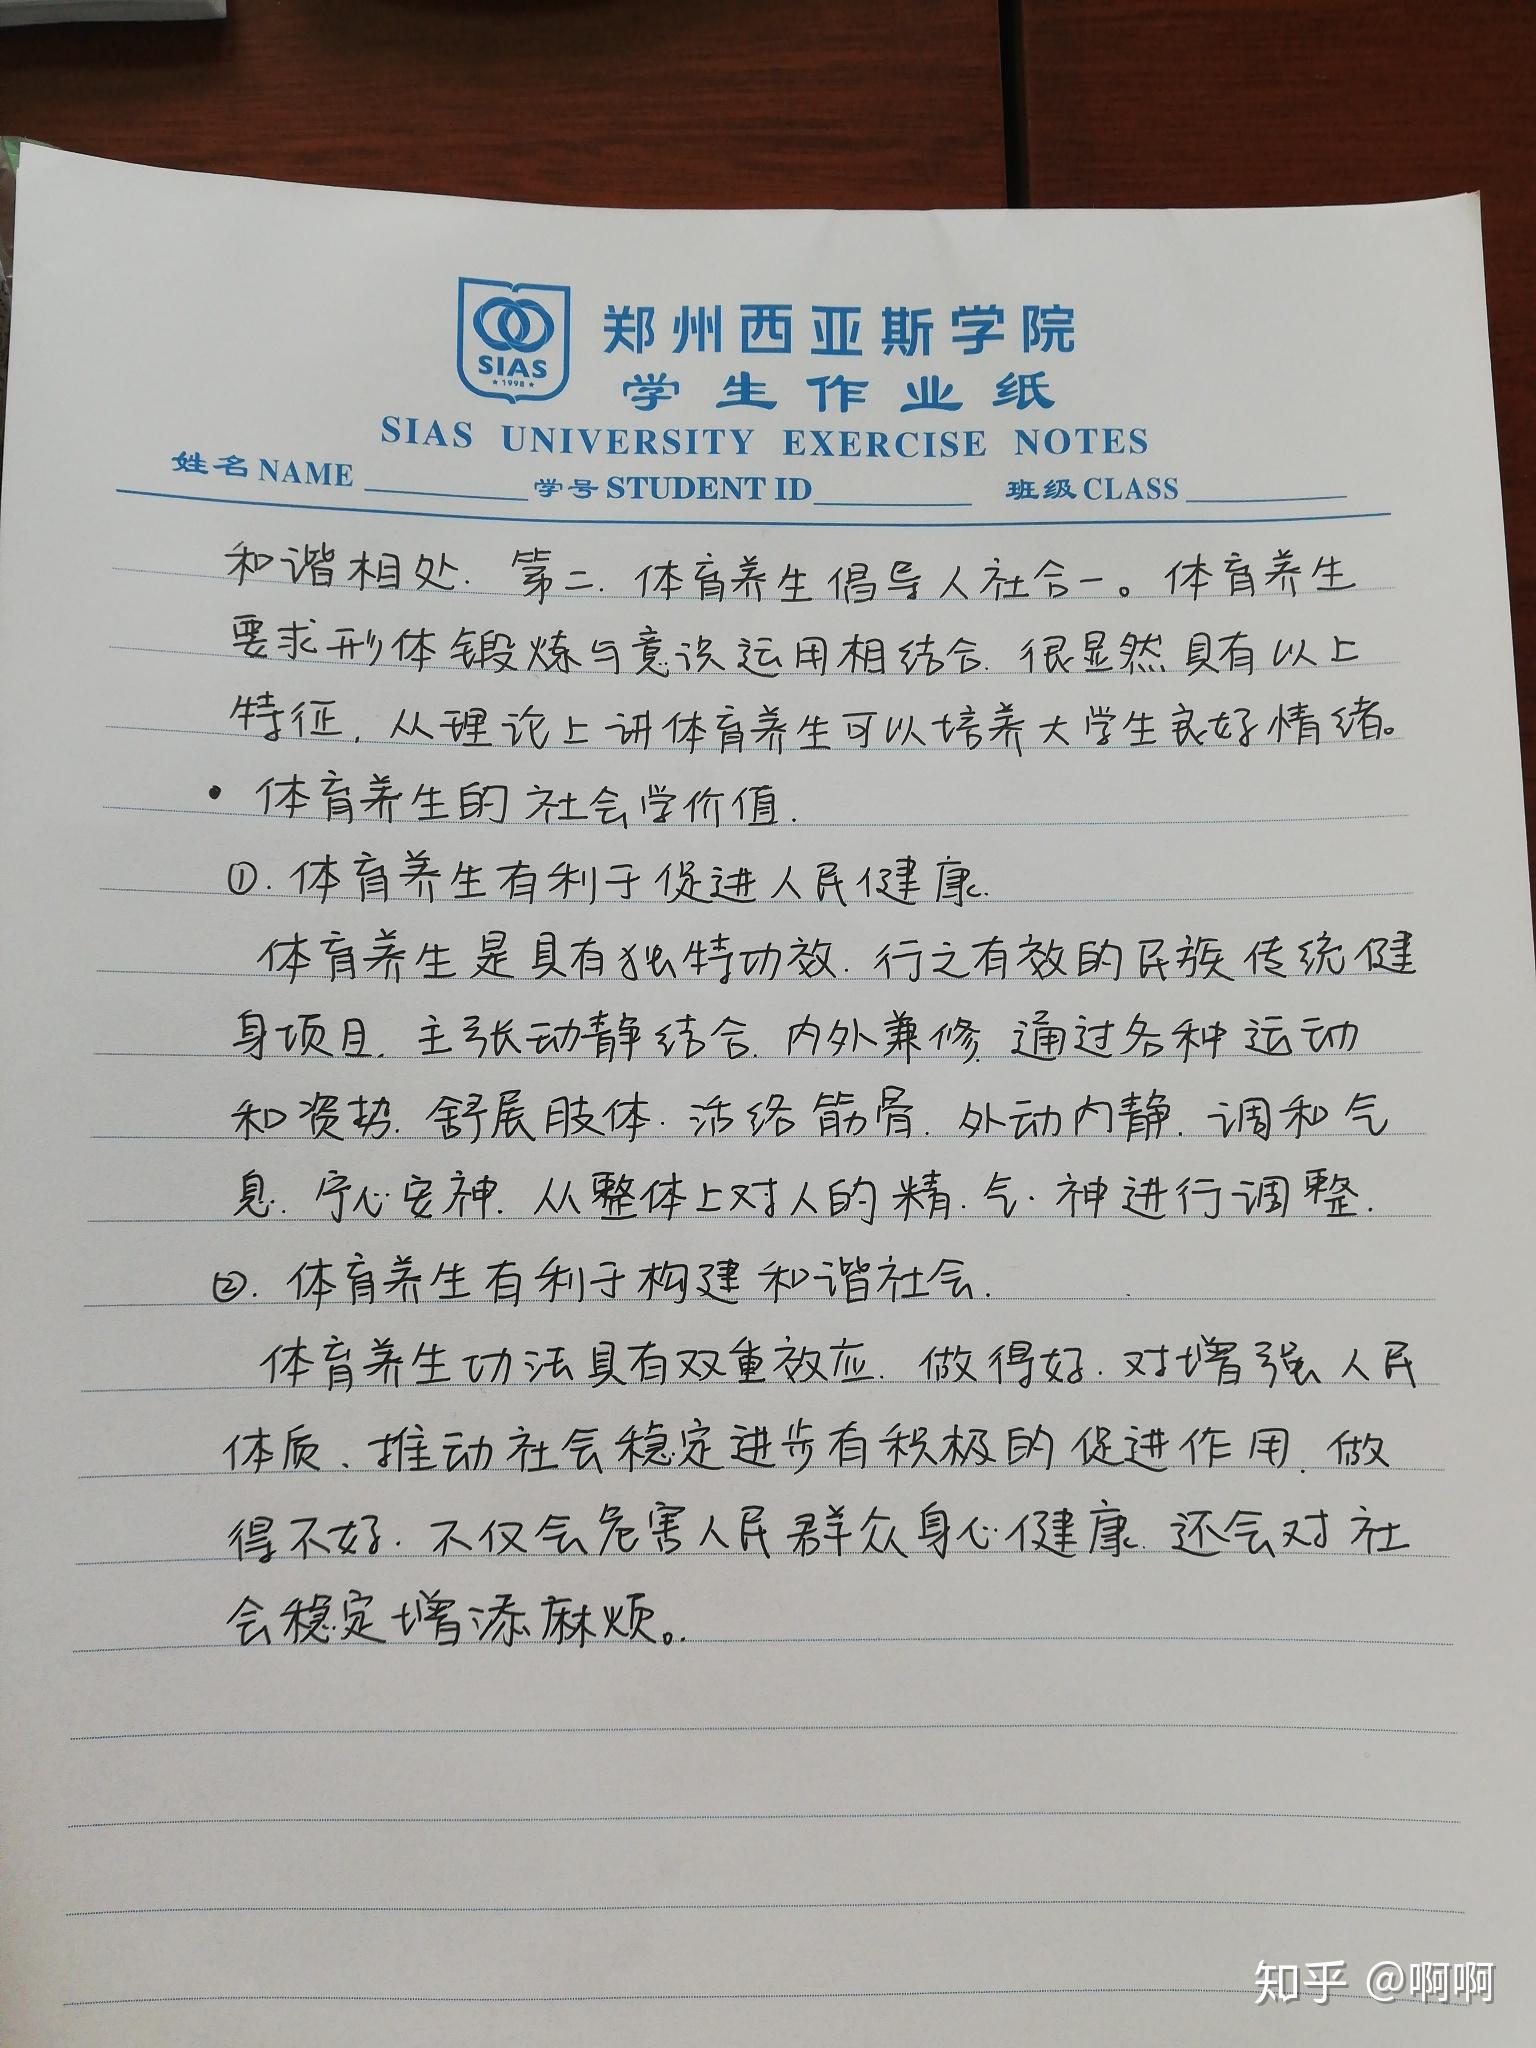 SIAS
1998
郑州西亚斯学院
学生作业纸
SIAS UNIVERSITY EXERCISE NOTES
姓名 NAME 学号 STUDENT ID 班级 CLASS
和谐相处. 第二. 体育养生倡导人社合一。体育养生
要求形体锻炼与意识运用相结合. 很显然具有以上
特征, 从理论上讲体育养生可以培养大学生良好情绪。
• 体育养生的社会学价值.
①. 体育养生有利于促进人民健康.
体育养生是具有独特功效. 行之有效的民族传统健
身项目. 主张动静结合. 内外兼修. 通过各种运动
和姿势. 舒展肢体. 活络筋骨. 外动内静. 调和气
息. 宁心安神. 从整体上对人的精. 气. 神进行调整.
②. 体育养生有利于构建和谐社会.
体育养生功法具有双重效应. 做得好. 对增强人民
体质、推动社会稳定进步有积极的促进作用. 做
得不好. 不仅会危害人民群众身心健康. 还会对社
会稳定增添麻烦。.
知乎 @啊啊